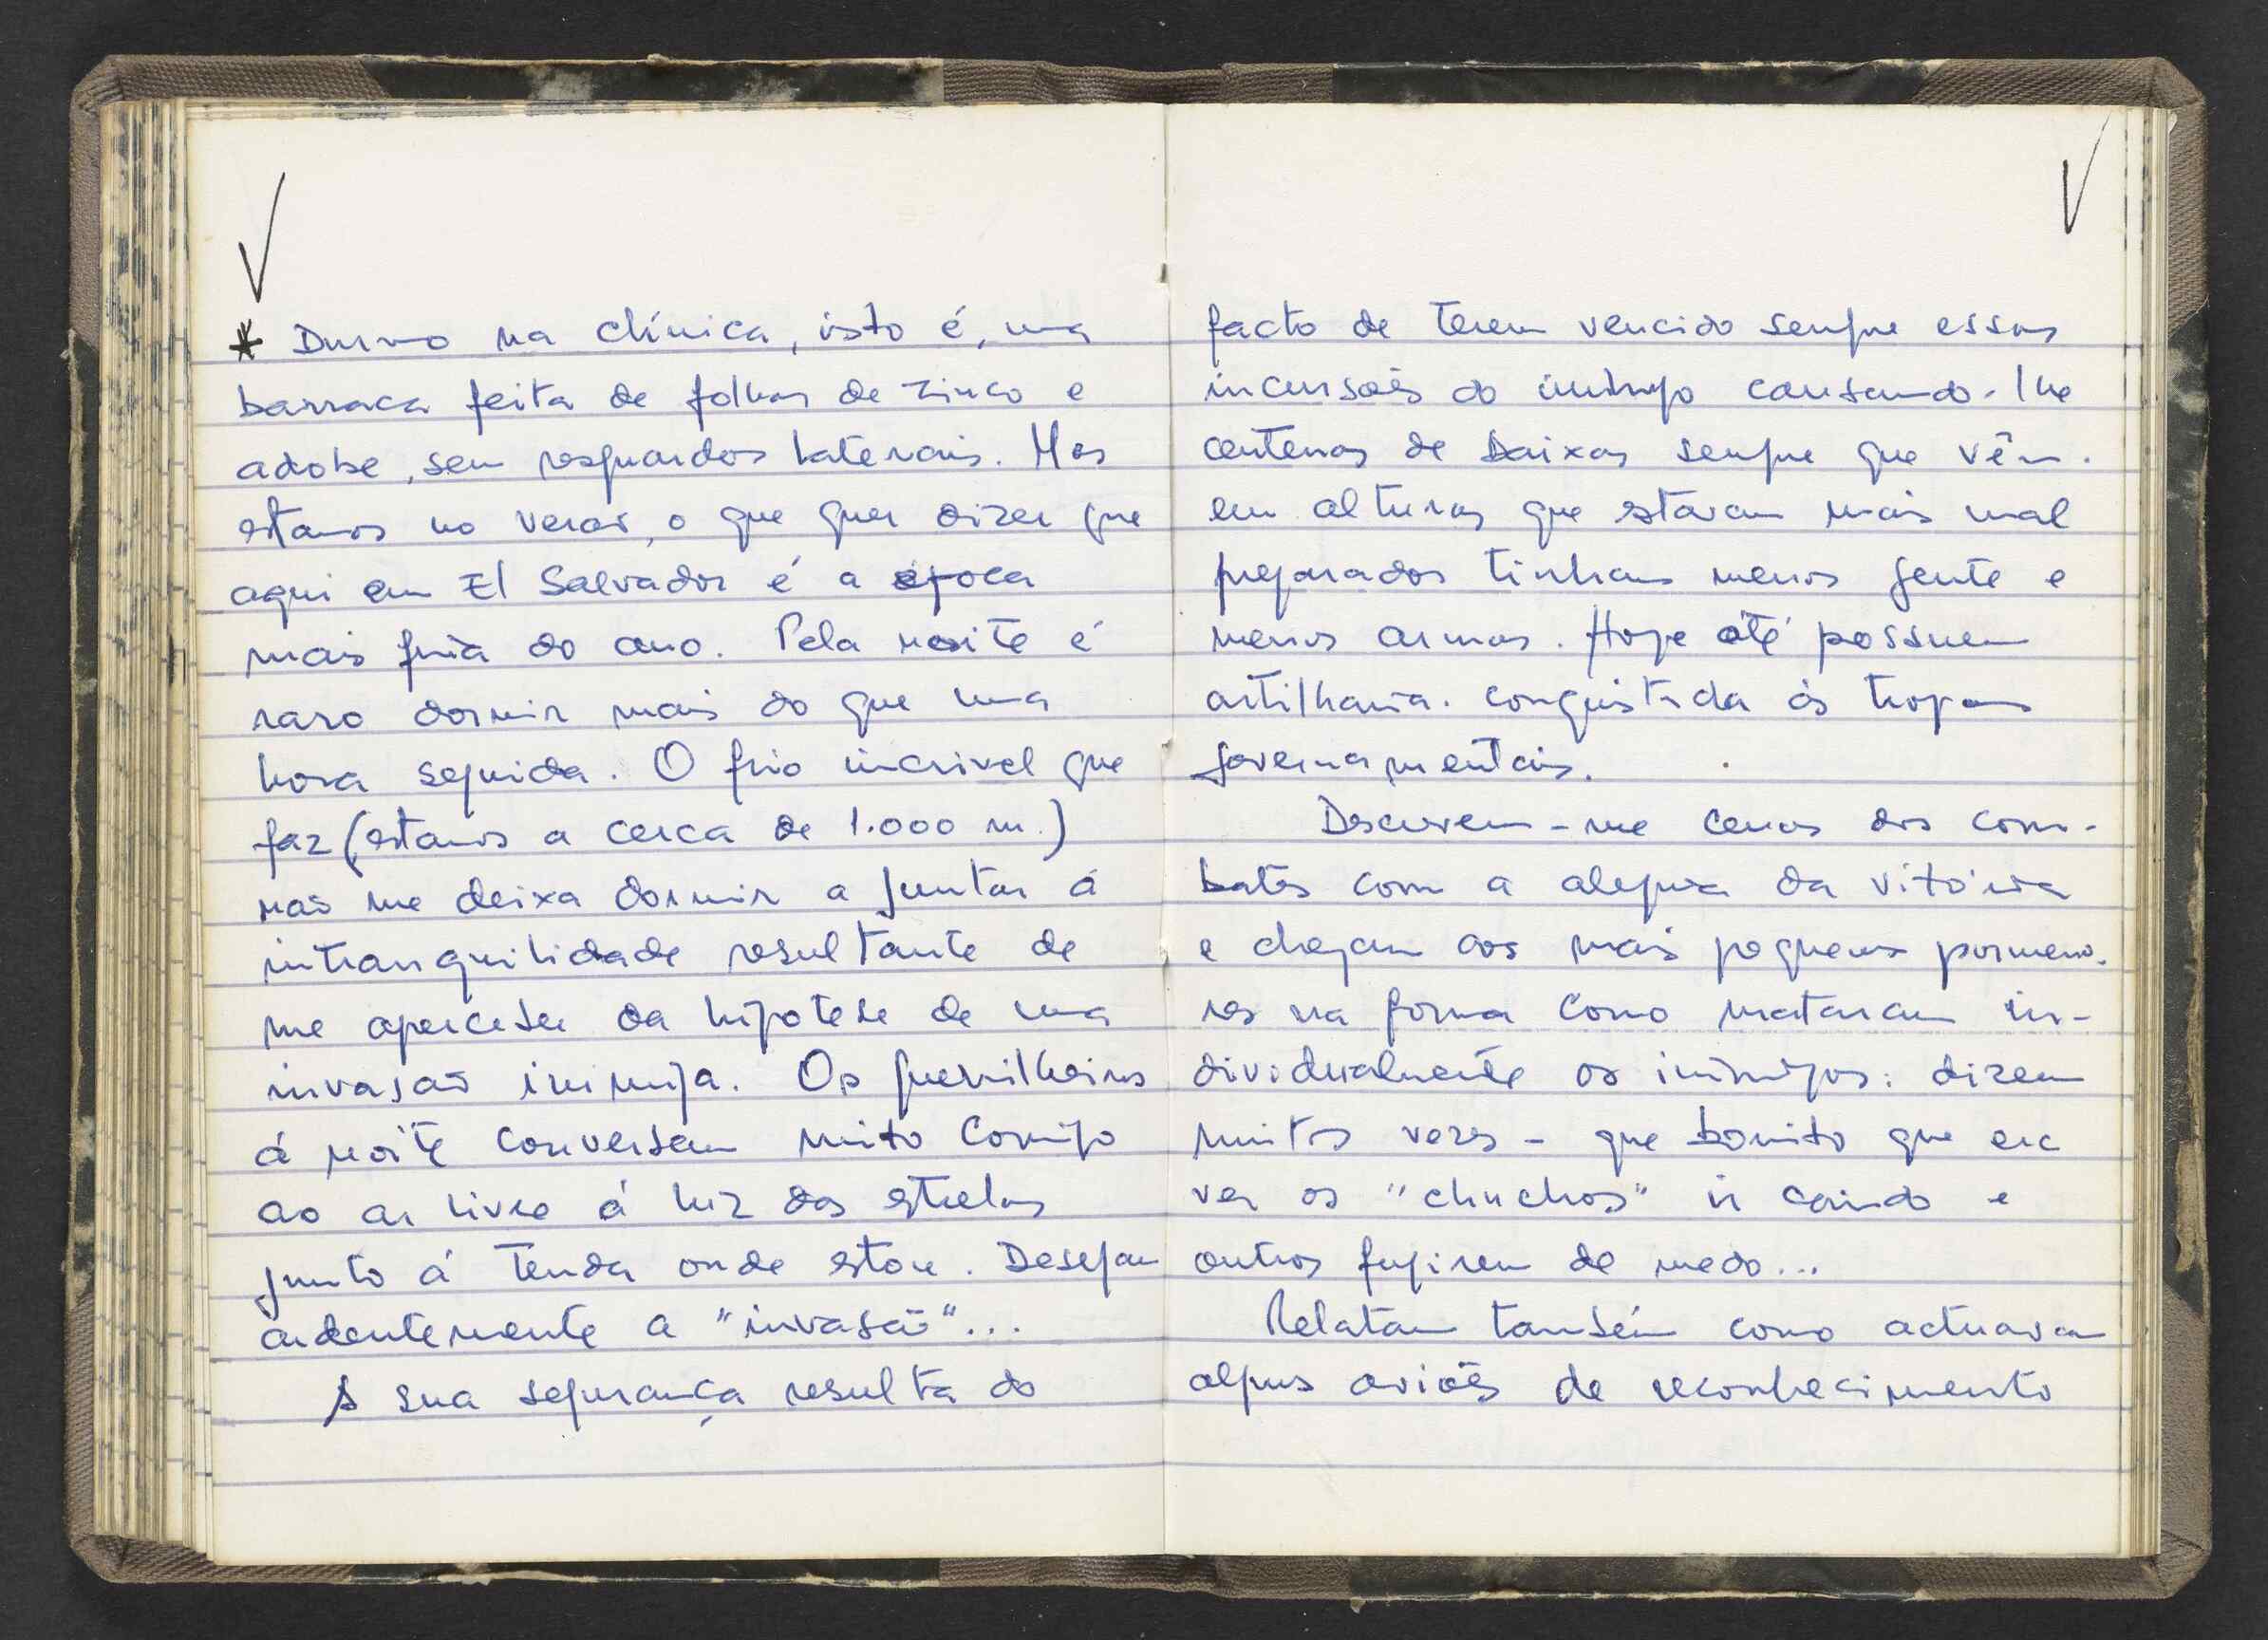 * Durmo na clínica, isto é, uma
barraca feita de folhas de zinco e
adobe, sem resguardos laterais. Mas
estamos no verão, o que quer dizer que
aqui em El Salvador é a época
mais fria do ano. Pela noite é
raro dormir mais do que uma
hora seguida. O frio incrivel que
faz (estamos a cerca de 1.000 m.)
não me deixa dormir a juntar á
intranquilidade resultante de
me aperceber da hipotese de uma
invasão inimiga. Os guerrilheiros
á noite conversam muito comigo
ao ar livre á luz das estrelas
junto á tenda onde estou. Desejam
ardentemente a "invasão"...
A sua segurança resulta do
facto de terem vencido sempre essas
incursões do inimigo causando-lhe
centenas de baixas sempre que vêm.
em alturas que estavam mais mal
preparados tinham menos gente e
menos armas. Hoje até possuem
artilharia. conquistada ás tropas
governamentais.
Descrevem-me cenas dos com-
bates com a alegria da vitória
e chegam aos mais pequenos pormeno-
res na forma como mataram in-
dividualmente os inimigos: dizem
muitas vezes - que bonito que era
ver os "chuchos" ir caindo e
outros fugirem de medo...
Relatam também como actuavam
alguns aviões de reconhecimento